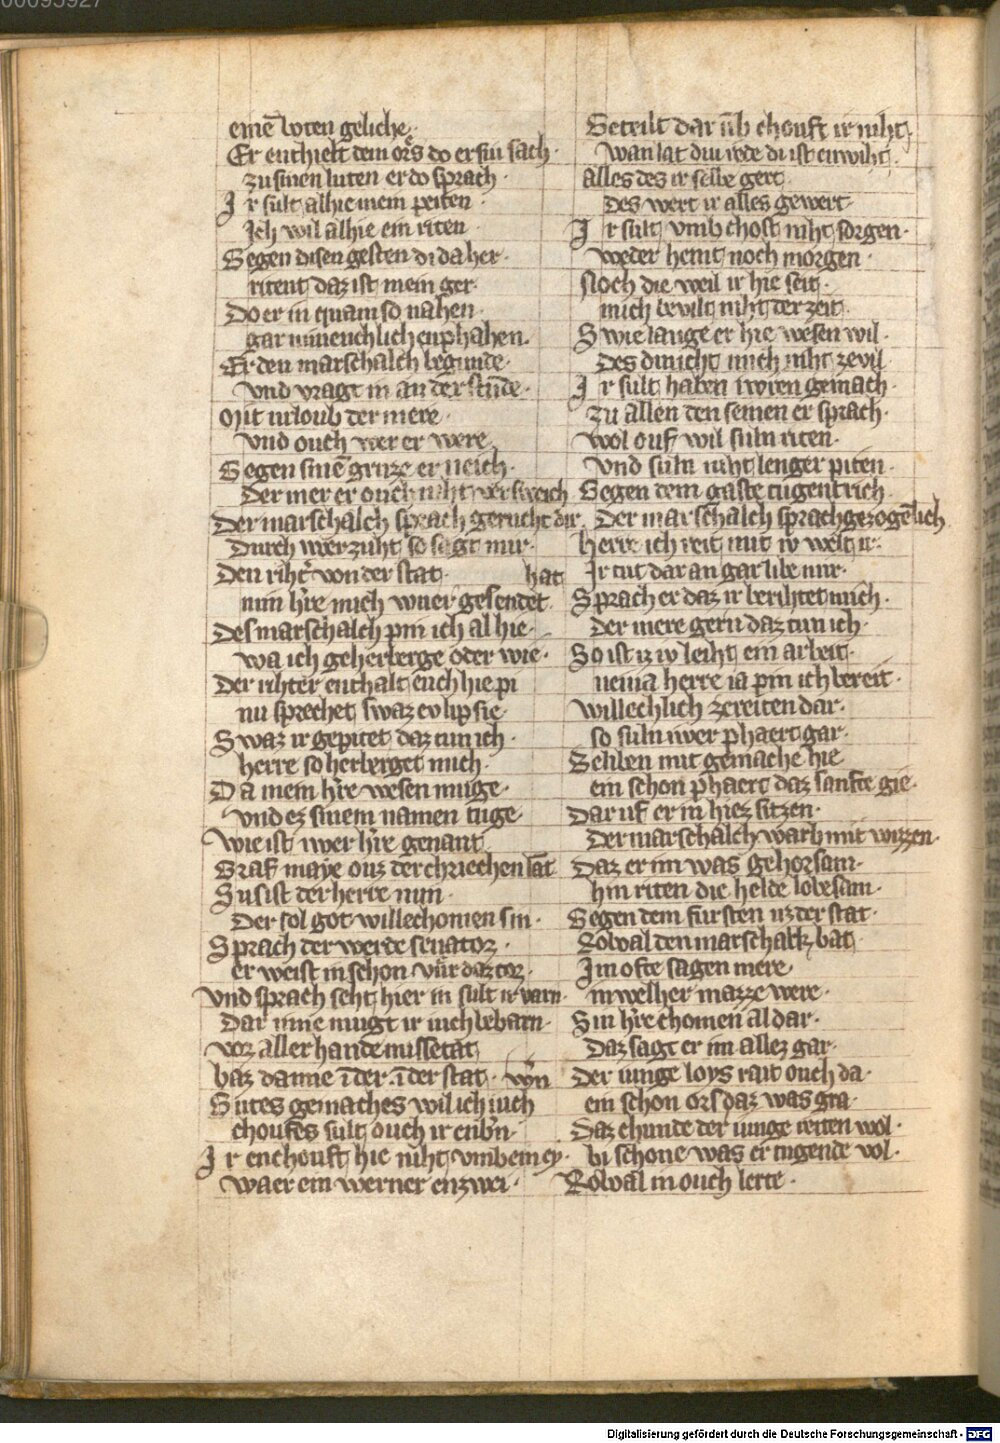 einē boten geliche
Er enthielt dem ors do er sin sach
zu sinen luten er do sprach
Ir sult alhie mein peiten
Ich wil alhie ein riten
Gegen disen gesten di da her
ritent daz ist mein ger
Do er in quam so nahen
gar minenchlich enphahen
Er den marschalch begunde
vnd vragt in an der stūde
Mit urloub der mere
vnd ouch wer er were
Gegen sinē gruze er neich
Der mer er ouch niht versweich
Der marschalch sprach gerucht dir
Durch wer zuht so sagt mir
Den riht von der stat
hat
min hre mich vwer gesendet
Des marschalch pin ich al hie
wa ich geherberge oder wie
Der rihter enthalt euch hie pi
nu sprechet swaz ev lip sie
Swaz ir gepitet daz tun ich
herre so herberget mich
Da mein hre wesen muge
vnd ez sinem namen tuge
Wie ist iwer hre genant
Graf maye ouz der chriechen lāt
Sus ist der herre min
Der sol got willechomen sin
Sprach der werde senator
er weist in schon vur daz tor
Vnd sprach seht hier in sult ir varn
Dar inne mugt ir iuch bebarn
vor aller hande missetat
baz danne ī der ī der stat
Gutes gemaches wil ich iuch wn
choufes sult ouch ir enbn
Ir enchouft hie niht vmb ein ey
waer ein werner enzwei
Geteilt dar ūb chouft ir niht
wan lat diu rede di ist enwiht
Alles des ir selbe gert
Des wert ir alles gewert
Ir sult vmb chost niht sorgen
weder hewt noch morgen
Noch die weil ir hie seit
mich bevilt niht der zeit
Swie lange er hie wesen wil
Des duncht mich niht ze vil
Ir sult haben iwren gemach
zu allen den seinen er sprach
Wol ouf wil suln riten
vnd suln niht lenger piten
Gegen dem gaste tugentrich
Der marschalch sprach gezogēlich
Herre ich reit mit iv welt ir
Ir tut dar an gar libe mir
Sprach er daz ir berihtet mich
Der mere gern daz tun ich
So ist iz iv leiht ein arbeit
neina herre ia pin ich bereit
Willechlich ze reiten dar
so suln iwer phaert gar
Beliben mit gemache hie
ein schon phaert daz sanfte gie
Dar uf er in hiez sitzen
Der marschalch warb mit witzen
Daz er im was gehorsam
hin riten die helde lobesam
Gegen dem fursten uz der stat
Kowal den marschalk bat
Im ofte sagen mere
in welher mazze were
Sin hre chomen al dar
Daz sagt er im allez gar
Der iunge loys rait ouch da
ein schon ors daz was gra
Daz chunde der iunge reiten wol
bi schone was er tugende vol
Kowal in ouch lerte
Digitalisierung gefördert durch die Deutsche Forschungsgemeinschaft - DFG